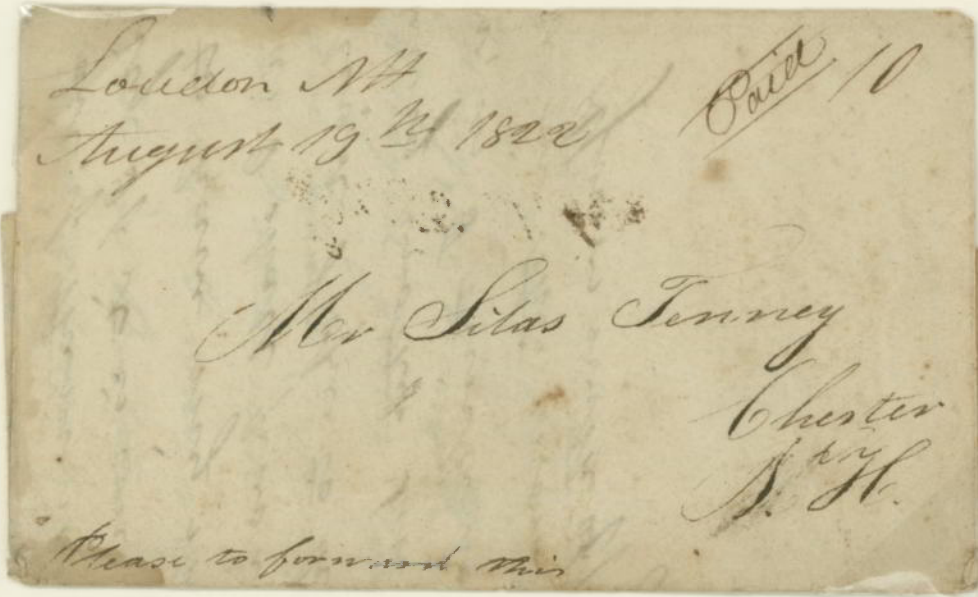 Loudon NH
August 19th 1822
Paid 10
Mr Silas Tenney
Chester
N. H.
Please to forward this